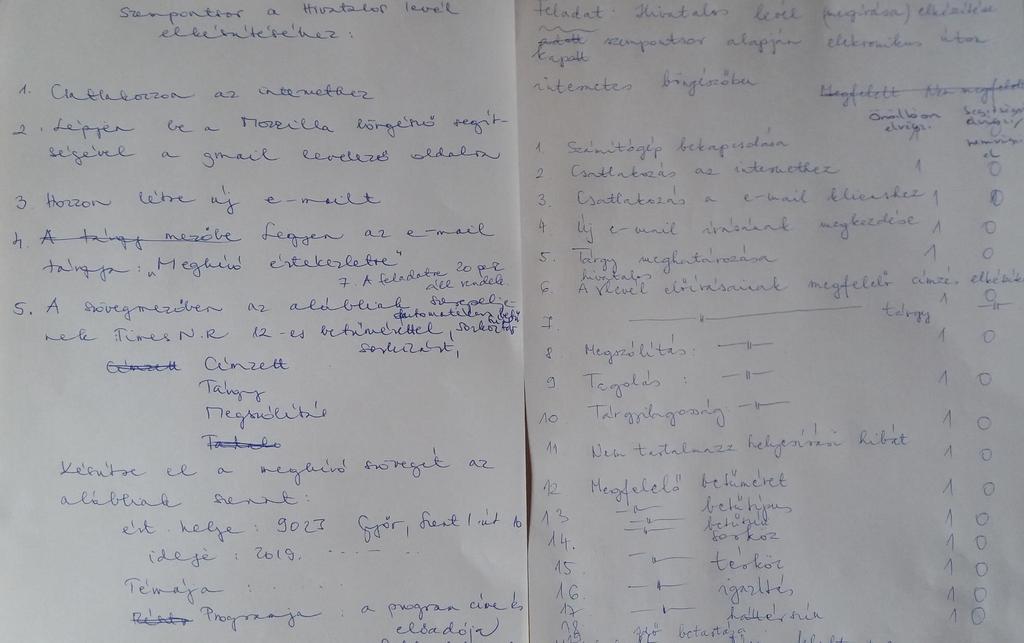 Szempontsor a Hivatalos levél
elkészítéséhez:
1. Csatlakozzon az internethez
2. Lépjen be a Mozzilla böngésző segít-
ségével a gmail levelező oldalra
3. Hozzon létre új e-mailt
4. A tárgy mezőbe Legyen az e-mail
tárgya: „Meghívó értekezletre"
7. A feladatra 20 perc
áll rendelk.
5. A szövegmezőben az alábbiak szerepelje-
nek Times N.R 12-es betűmérettel,
automatikus betű
szín, sorköz
sorkizárt,
Címzett Címzett
Tárgy
Megszólítás
Készítse el a meghívó szövegét az
alábbiak szerint:
ért. helye: 9023 Győr, Szent I. út 10
ideje: 2019.
Témája:
Programja: a program címe és
előadója
Feladat: Hivatalos levél (megírása) elkészítése
kapott szempontsor alapján elektronikus úton
internetes böngészőben
Megfelelt Nem megfelelt
Önállóan
elvégzi.
1. Számítógép bekapcsolása 1 0
2 Csatlakozás az internethez 1 0
3. Csatlakozás a e-mail klienshez 1 0
4. Új e-mail írásának megkezdése 1 0
5. Tárgy meghatározása 1 0
hivatalos
6. A levél előírásainak megfelelő címzés elkészítése 1 0
7. tárgy 1 0
8. Megszólítás: 1 0
9 Tagolás: 1 0
10 Tárgyilagosság 1 0
11 Nem tartalmazz helyesírási hibát 1 0
12 Megfelelő betűméret 1 0
13 betűtípus 1 0
betűszín
14. sorköz 1 0
15 térköz 1 0
16. igazítás 1 0
17 háttérszín 1 0
18. betartása